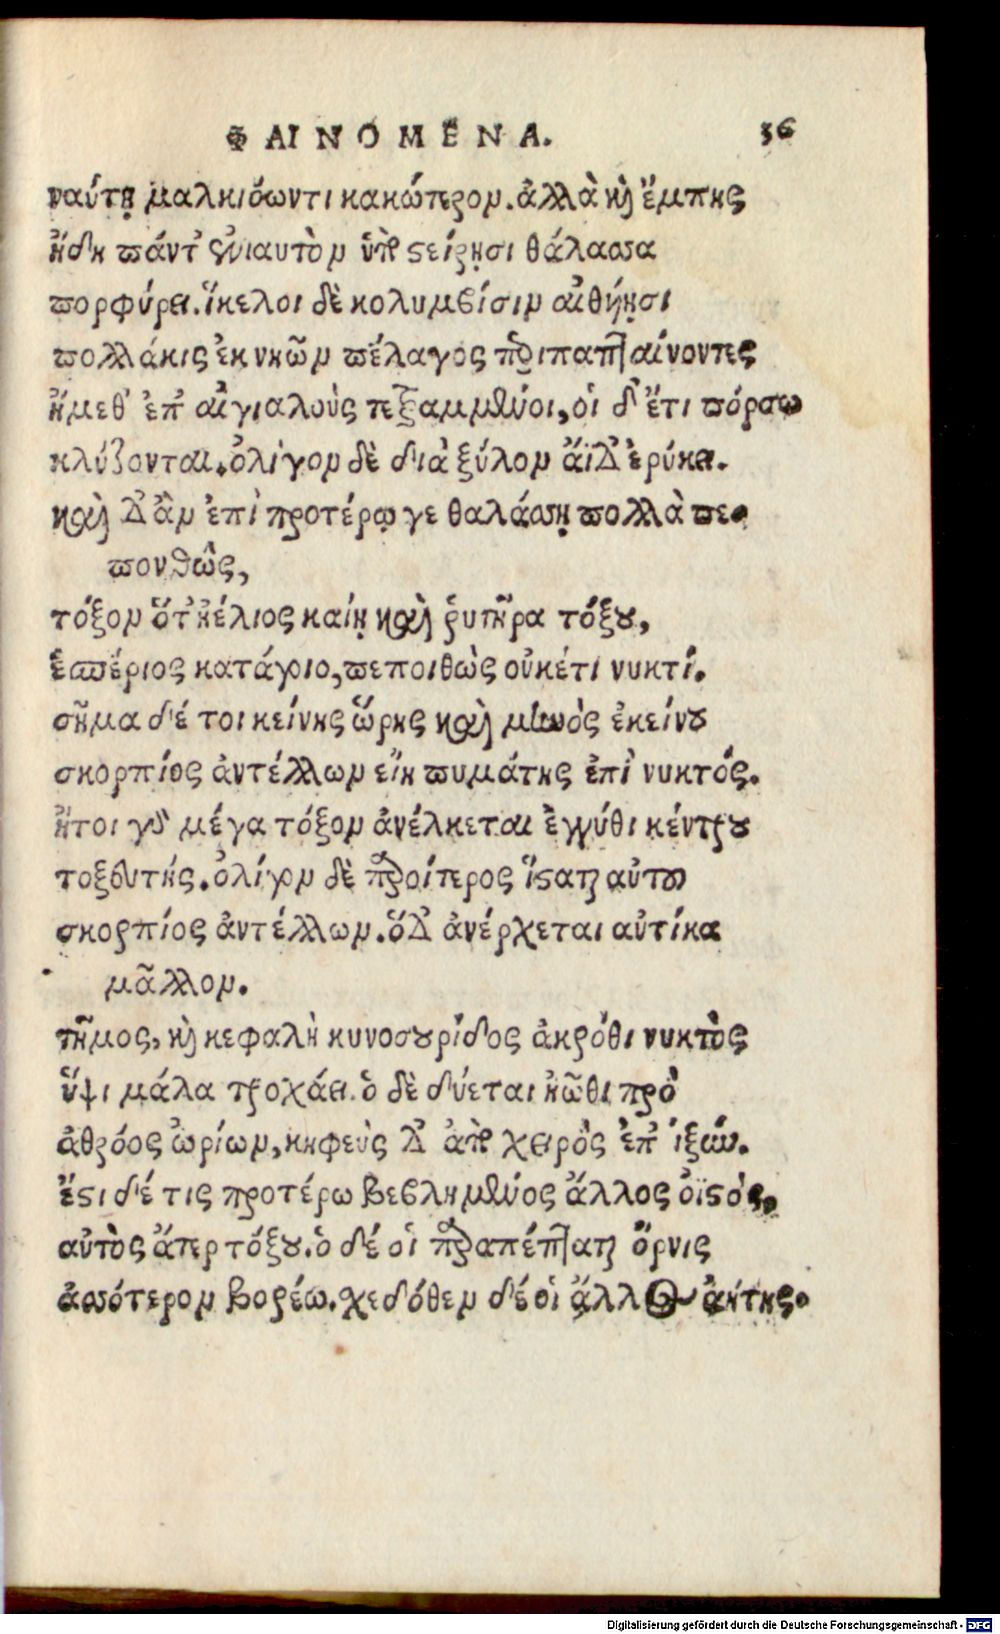 ΦΑΙΝΟΜΕΝΑ. 36
ναύτῃ μαλκιόωντι κακώτερον. ἀλλὰ καὶ ἔμπης
ἤδη πάντ᾽ ἐνιαυτὸν ὑπὸ στείρῃσι θάλασσα
πορφύρει. ἴκελοι δὲ κολυμβίσιν αἰθυίῃσι
πολλάκις ἐκ νηῶν πέλαγος περιπαπταίνοντες
ἥμεθ᾽ ἐπ᾽ αἰγιαλοὺς τετραμμένοι, οἱ δ᾽ ἔτι πόρσω
κλύζονται. ὀλίγον δὲ διὰ ξύλον ἄϊδ᾽ ἐρύκει.
καὶ δ᾽ ἂν ἐπὶ προτέρῳ γε θαλάσσῃ πολλὰ πε-
πονθὼς,
τόξον ὅτ᾽ ἠέλιος καίῃ καὶ ῥυτῆρα τόξου,
ἑσπέριος κατάγοιο, πεποιθὼς οὐκέτι νυκτί.
σῆμα δέ τοι κείνης ὥρης καὶ μηνὸς ἐκείνου
σκορπίος ἀντέλλων εἴη πυμάτης ἐπὶ νυκτός.
ἤτοι γὰρ μέγα τόξον ἀνέλκεται ἐγγύθι κέντρου
τοξευτής. ὀλίγον δὲ παροίτερος ἵσταται αὐτοῦ
σκορπίος ἀντέλλων. ὅδ᾽ ἀνέρχεται αὐτίκα
μᾶλλον.
τῆμος, καὶ κεφαλὴ κυνοσουρίδος ἀκρόθι νυκτὸς
ὕψι μάλα τροχάει. ὁ δὲ δύεται ἠῶθι πρὸ
ἀθρόος ὠρίων, κηφεὺς δ᾽ ἀπὸ χειρὸς ἐπ᾽ ἰξύν.
ἔστι δέ τις προτέρω βεβλημένος ἄλλος ὀϊστός,
αὐτὸς ἄτερ τόξου. ὁ δέ οἱ παραπέπταται ὄρνις
ἀσσότερον βορέω. χεδόθεν δέ οἱ ἄλλος ἀήτης.
Digitalisierung gefördert durch die Deutsche Forschungsgemeinschaft - DFG